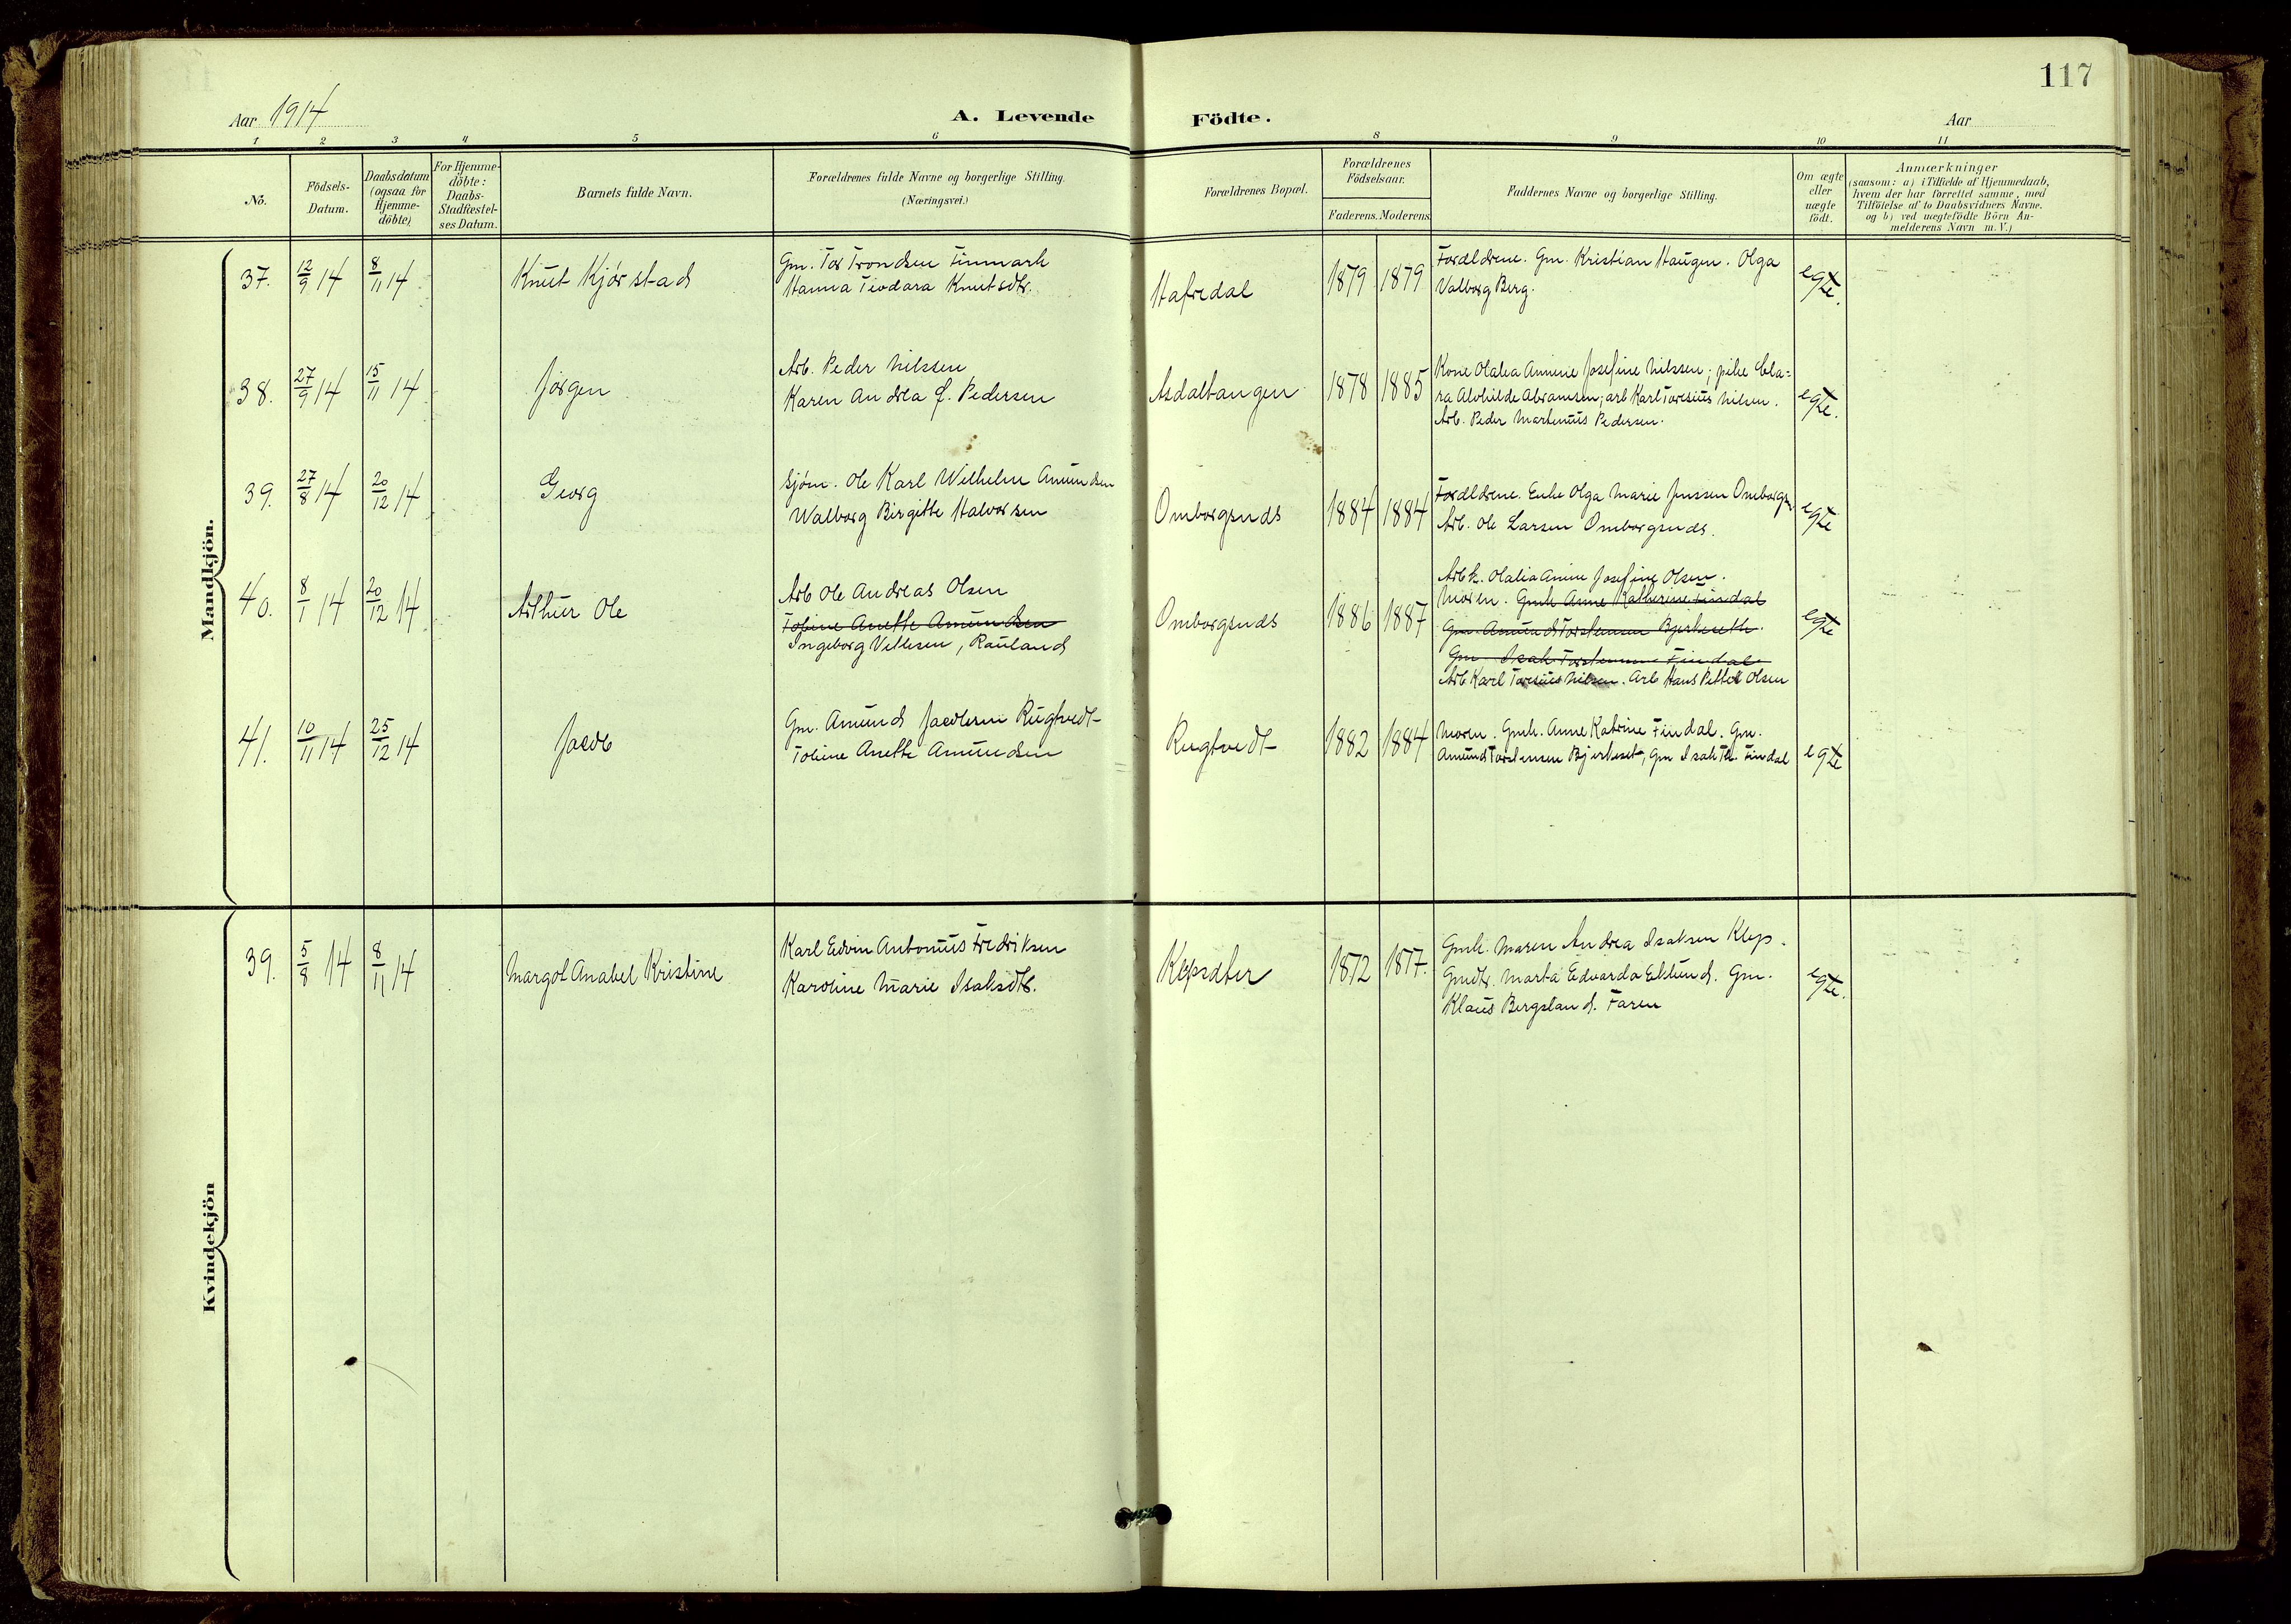 117
Aar 1914
A. Levende Födte.
Aar
1 2 3 4 5 6 8 9 10 11
No.
Födsels-
Datum.
Daabsdatum
(ogsaa for
Hjemme-
döbte).
For Hjemme-
döbte:
Daabs-
Stadfæstel-
ses Datum.
Barnets fulde Navn.
Forældrenes fulde Navne og borgerlige Stilling.
(Næringsvei.)
Forældrenes Bopæl.
Forældrenes
Födselsaar.
Faderens. Moderens.
Faddernes Navne og borgerlige Stilling.
Om ægte
eller
uægte
födt.
Anmærkninger
(saasom: a) i Tilfælde af Hjemmedaab,
hvem der har forrettet samme, med
Tilföielse af to Daabsvidners Navne.
og b) ved uægtefödte Börn An-
melderens Navn m. V.)
Mandkjön.
37. 12/9 14 8/11 14 Knut Kjørstad
Gm. Tor Trondsen Finmark
Hanna Teodara Knutsdtr.
Hafredal 1879 1879
Forældrene. Gm. Kristian Haugen. Olga
Valborg Berg.
egte.
38. 27/9 14 15/11 14 Jørgen
Arb. Peder Nilssen
Karen Andrea f. Pedersen
Asdaltangen 1878 1885
Kone Olalea Annine Josefine Nilssen; pike Cla=
ra Alvhilde Abramsen; arb Karl Toresius Nilsen.
Arb. Peder Martenius Pedersen.
egte.
39. 27/8 14 20/12 14 Georg
Sjøm. Ole Karl Wilhelm Amundsen
Walborg Birgitte Halvorsen
Omborgsnds 1884 1884
Forældrene. Enke Olga Marie Jenssen Omborgsn.
Arb. Ole Larsen Omborgsnds.
egte
40. 8/1 14 20/12 14 Arthur Ole
Arb Ole Andreas Olsen
Tobine Anette Amundsen
Ingeborg Vetlesen, Rauland
Omborgsnds 1886 1887
Arb k. Olalia Anine Josefine Olsen.
Moren. Gmk Anne Katherine Findal
Gm. Amund Torstensen Bjerkeseth.
Gm Isak Torstensen Findal
Arb Karl Toresius Nilsen. Arb Hans Petter Olsen
egte
41. 10/11 14 25/12 14 Jacob
Gm. Amund Jacobsen Rugtvedt
Tobine Anette Amundsen
Rugtvedt 1882 1884
Moren. Gmk. Anne Katrine Findal. Gm.
Amund Torstensen Bjerkeset, Gm Isak Th. Findal
egte
Kvindekjön
39. 5/8 14 8/11 14 Margot Anabel Kristine
Karl Edvin Antonius Fredriksen
Karoline Marie Isaksdtr.
1872 1877.
Gmk. Maren Andrea Isaksen Klep.
Gmdtr. Marta Edvarda Eklund. Gm.
Klaus Bergsland. Faren
egte.